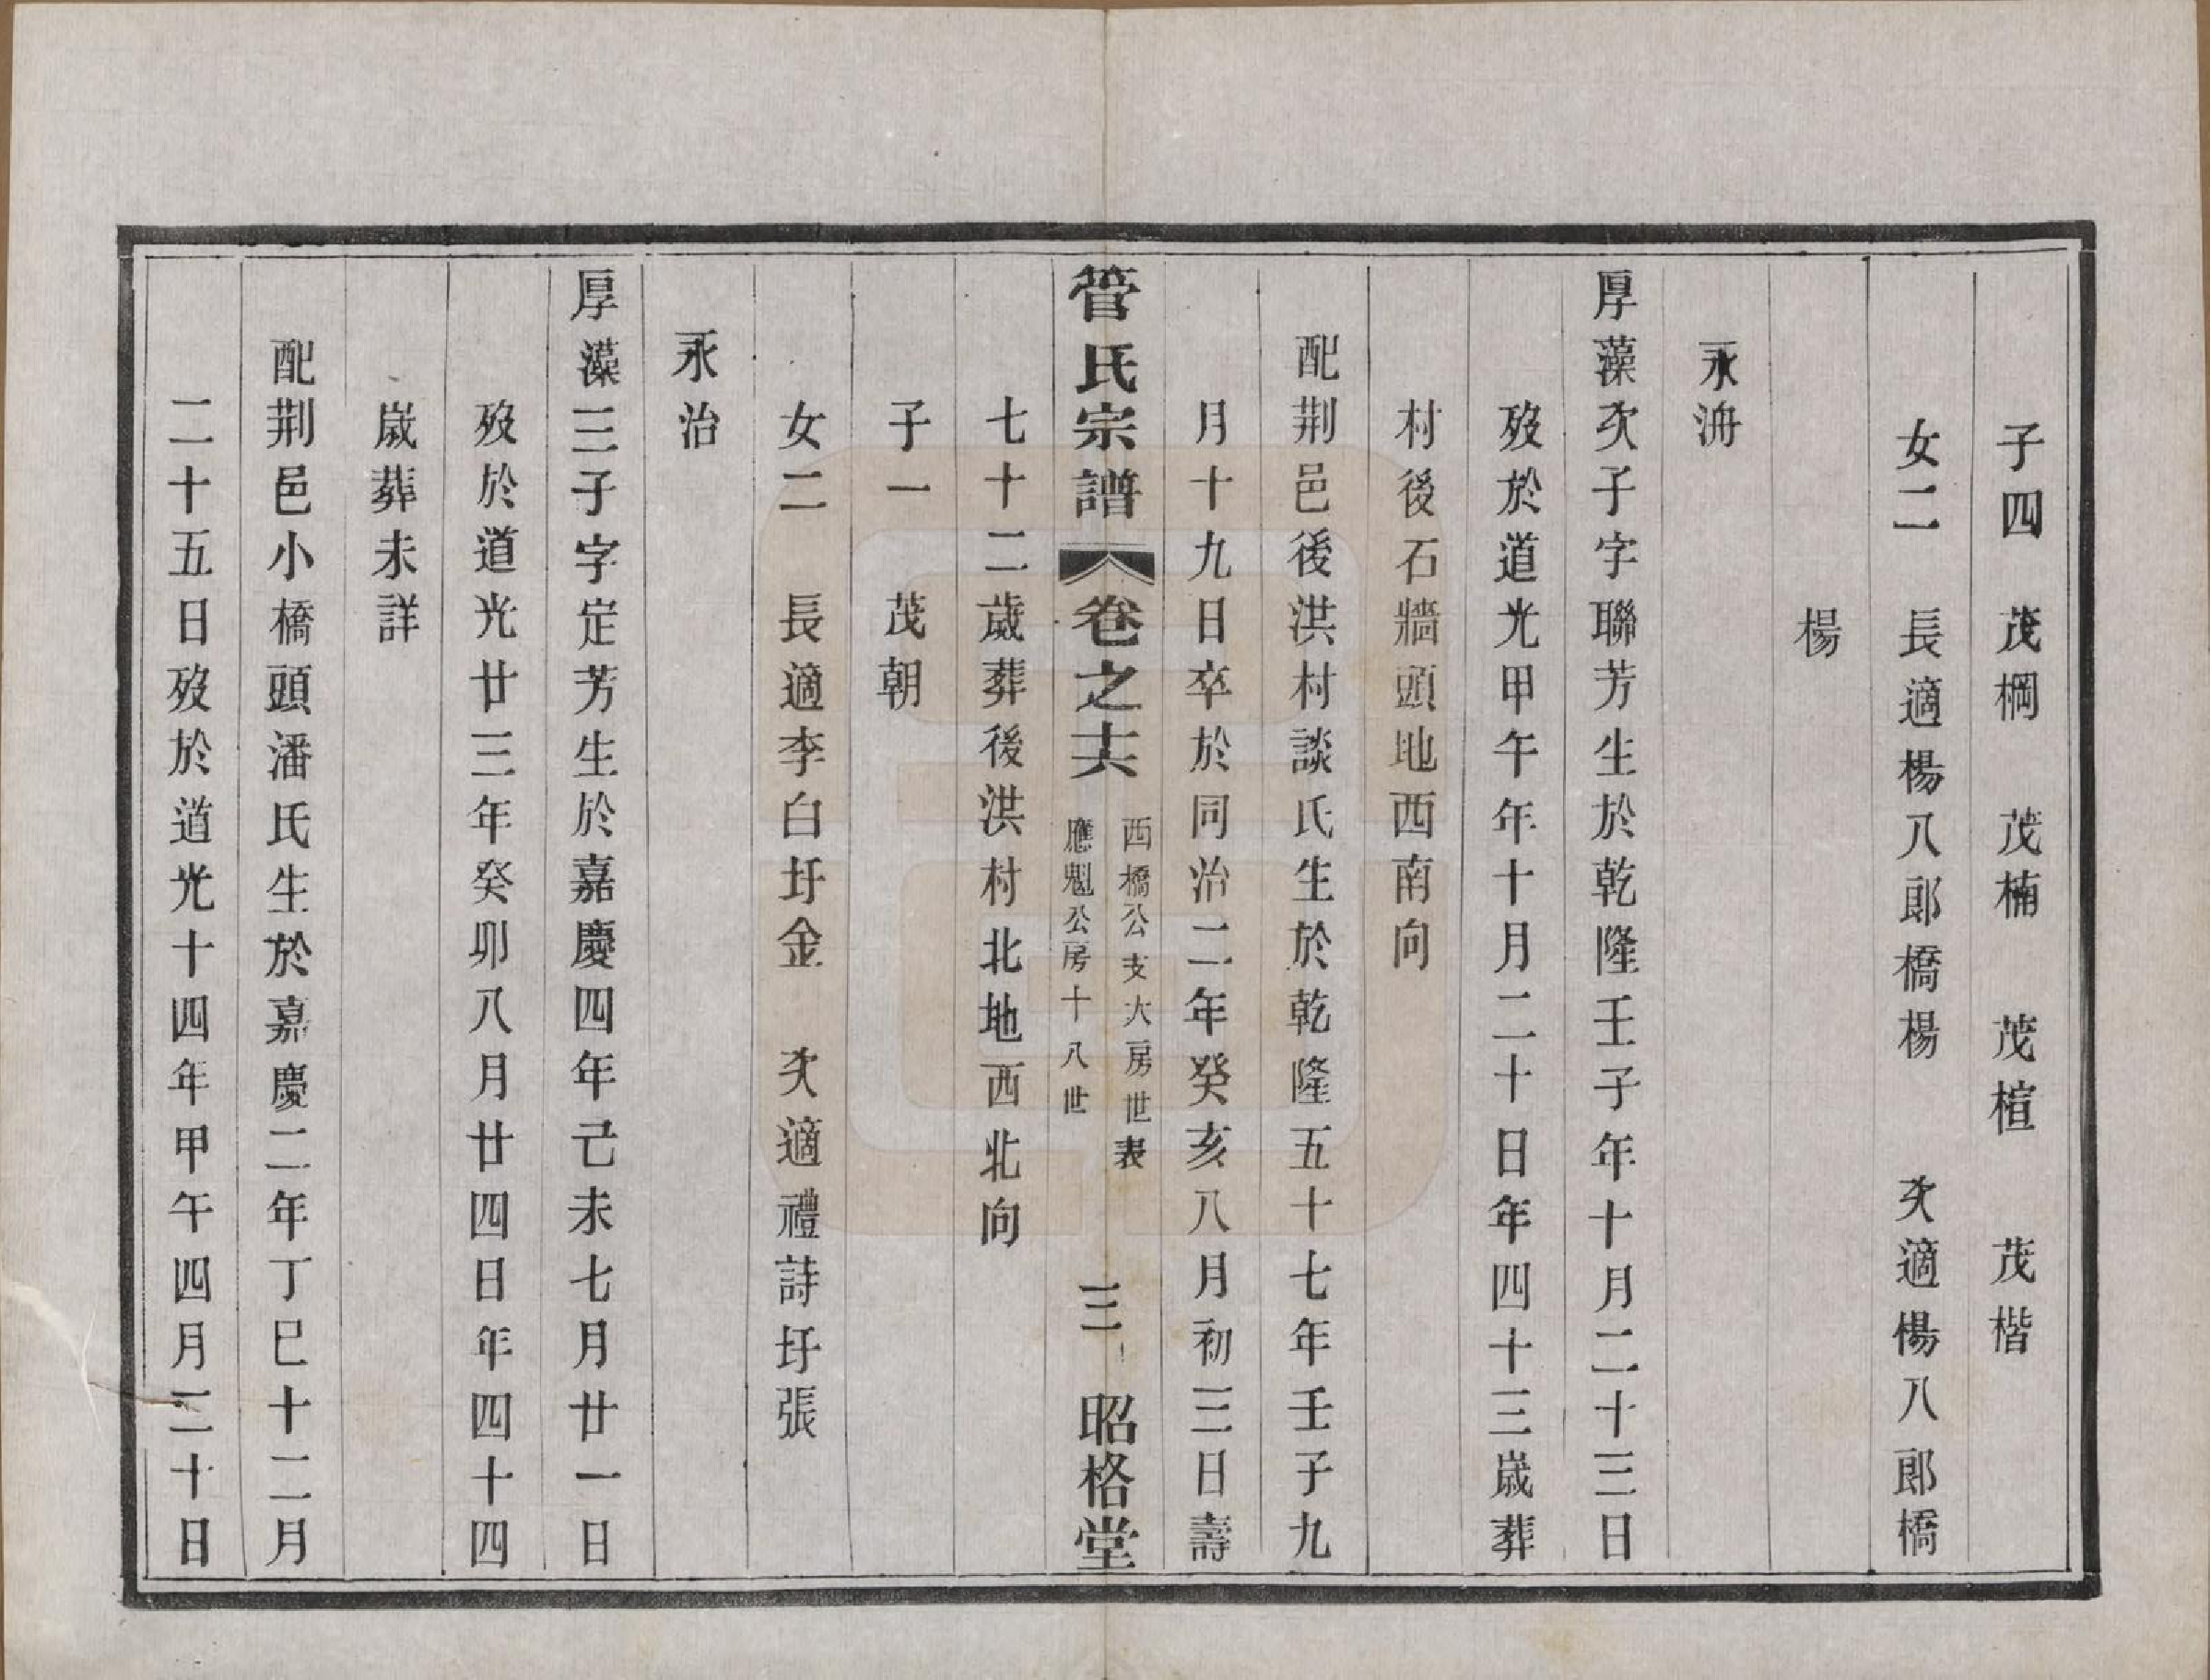 子四　茂棡　茂楠　茂楦　茂楷
女二　長適楊八郎橋楊　次適楊八郎橋
楊
永洀
厚藻次子字聯芳生於乾隆壬子年十月二十三日
歿於道光甲午年十月二十日年四十三歲葬
村後石牆頭地西南向
配荆邑後洪村談氏生於乾隆五十七年壬子九
月十九日卒於同治二年癸亥八月初三日壽
管氏宗譜　卷之十六　西橋公支大房世表　應魁公房十八世　三　昭格堂
七十二歲葬後洪村北地西北向
子一　茂朝
女二　長適李白圩金　次適禮詩圩張
永治
厚藻三子字定芳生於嘉慶四年己未七月廿一日
歿於道光廿三年癸卯八月廿四日年四十四
歲葬未詳
配荆邑小橋頭潘氏生於嘉慶二年丁巳十二月
二十五日歿於道光十四年甲午四月三十日